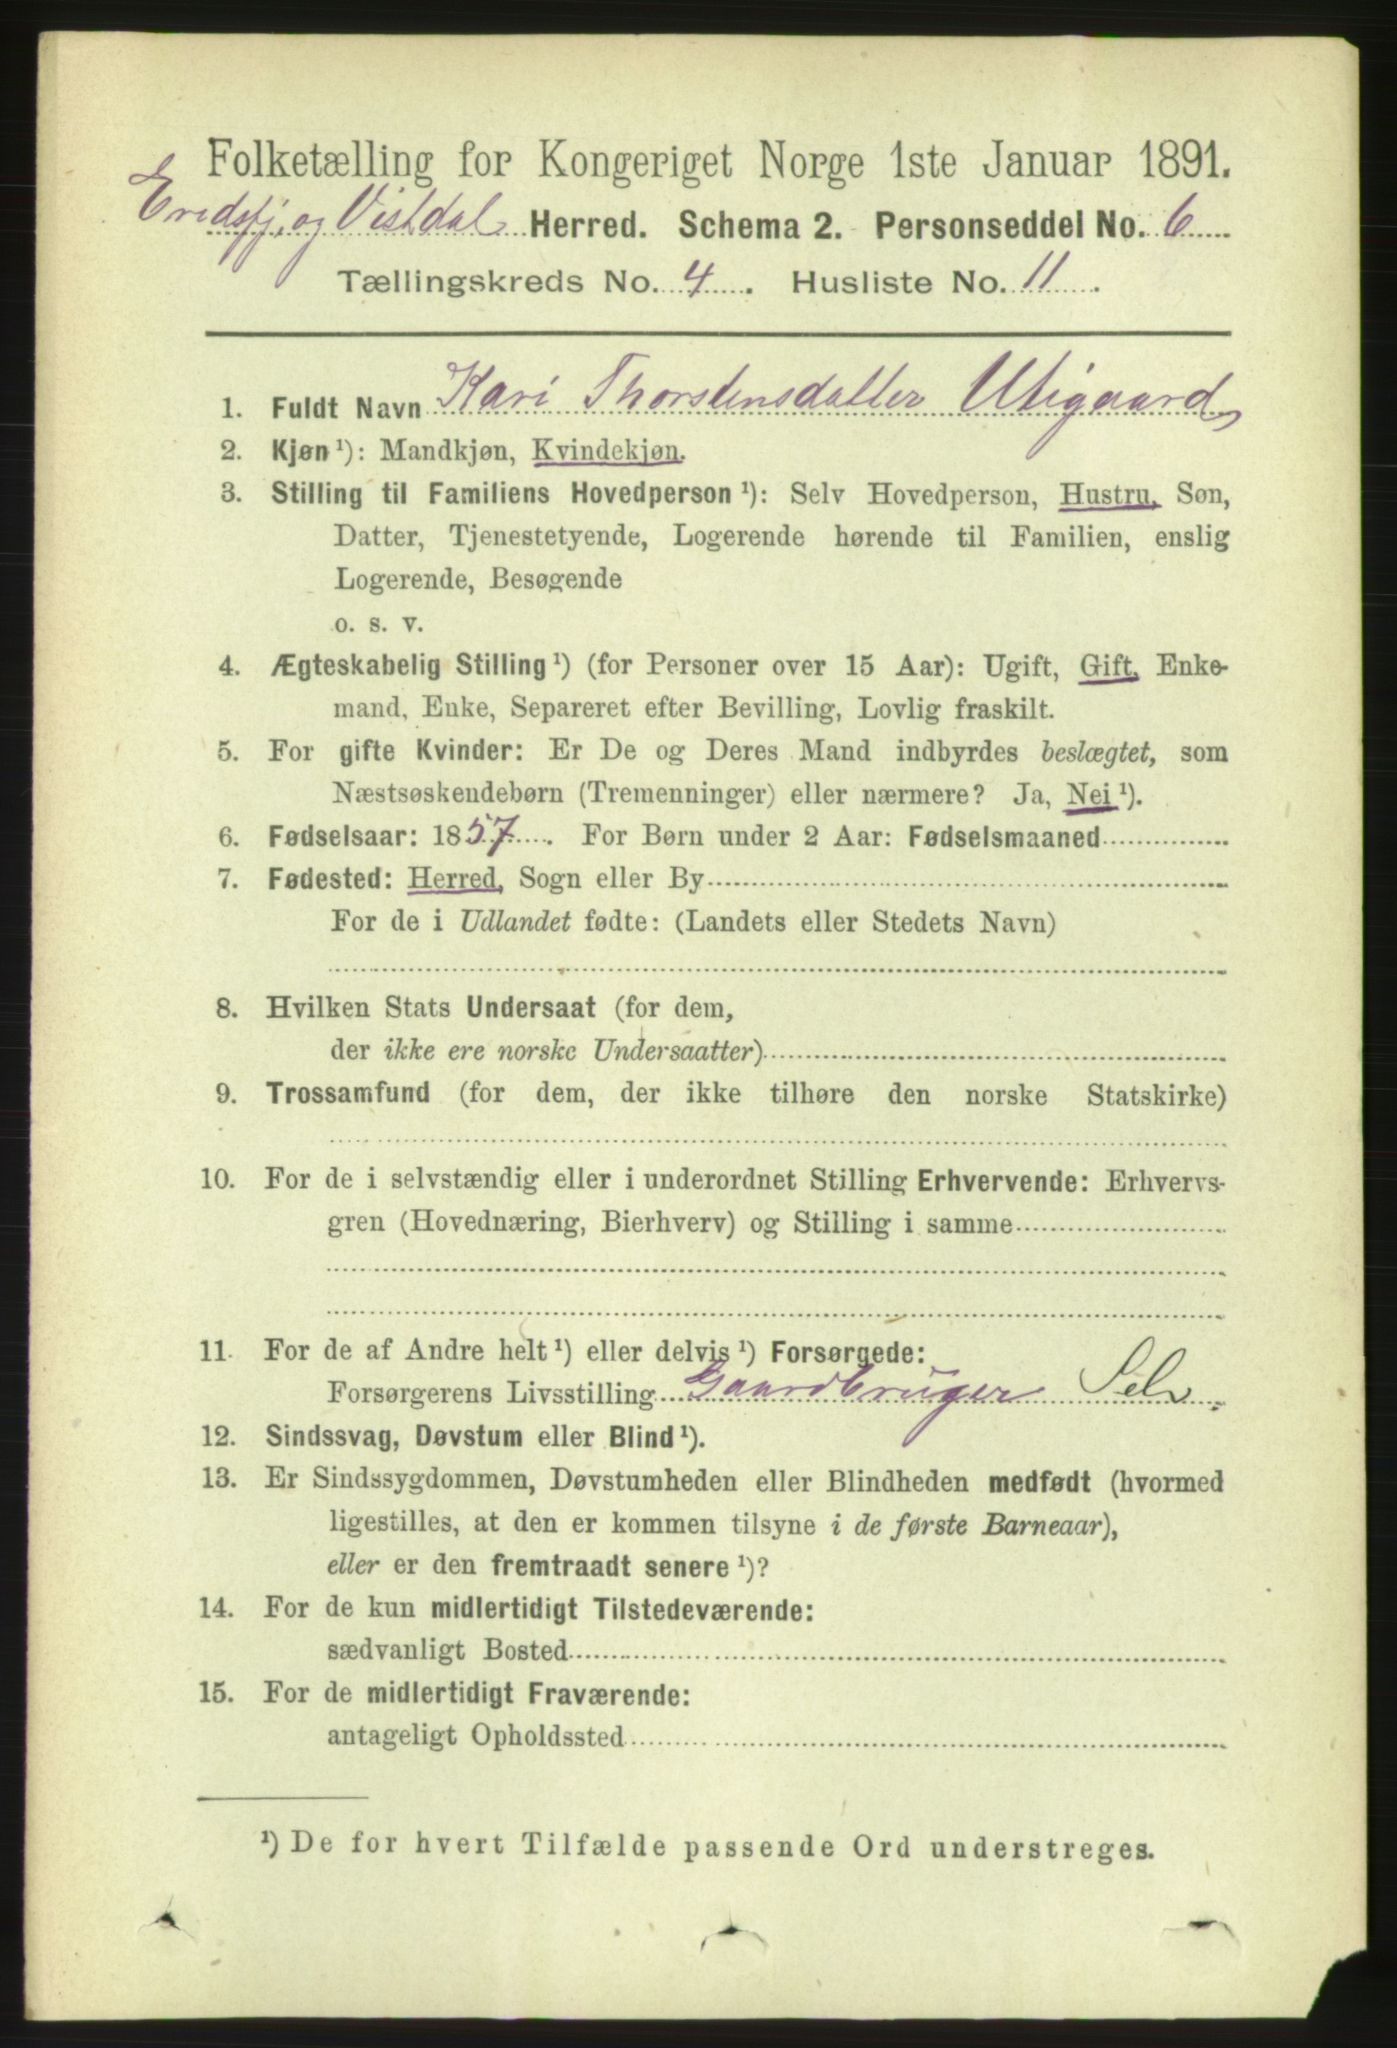 Folketælling for Kongeriget Norge 1ste Januar 1891.
Eridsfj. og Vistdal Herred. Schema 2. Personseddel No. 6
Tællingskreds No. 4. Husliste No. 11.
1. Fuldt Navn Kari Thorstensdatter Utigaard
2. Kjøn ¹): Mandkjøn, Kvindekjøn.
3. Stilling til Familiens Hovedperson ¹): Selv Hovedperson, Hustru, Søn,
Datter, Tjenestetyende, Logerende hørende til Familien, enslig
Logerende, Besøgende
o. s. v.
4. Ægteskabelig Stilling ¹) (for Personer over 15 Aar): Ugift, Gift, Enke-
mand, Enke, Separeret efter Bevilling, Lovlig fraskilt.
5. For gifte Kvinder: Er De og Deres Mand indbyrdes beslægtet, som
Næstsøskendebørn (Tremenninger) eller nærmere? Ja, Nei ¹).
6. Fødselsaar: 1857. For Børn under 2 Aar: Fødselsmaaned
7. Fødested: Herred, Sogn eller By
For de i Udlandet fødte: (Landets eller Stedets Navn)
8. Hvilken Stats Undersaat (for dem,
der ikke ere norske Undersaatter)
9. Trossamfund (for dem, der ikke tilhøre den norske Statskirke)
10. For de i selvstændig eller i underordnet Stilling Erhvervende: Erhvervs-
gren (Hovednæring, Bierhverv) og Stilling i samme
11. For de af Andre helt ¹) eller delvis ¹) Forsørgede:
Forsørgerens Livsstilling Gaardbruger Selv.
12. Sindssvag, Døvstum eller Blind ¹).
13. Er Sindssygdommen, Døvstumheden eller Blindheden medfødt (hvormed
ligestilles, at den er kommen tilsyne i de første Barneaar),
eller er den fremtraadt senere ¹)?
14. For de kun midlertidigt Tilstedeværende:
sædvanligt Bosted
15. For de midlertidigt Fraværende:
antageligt Opholdssted
¹) De for hvert Tilfælde passende Ord understreges.